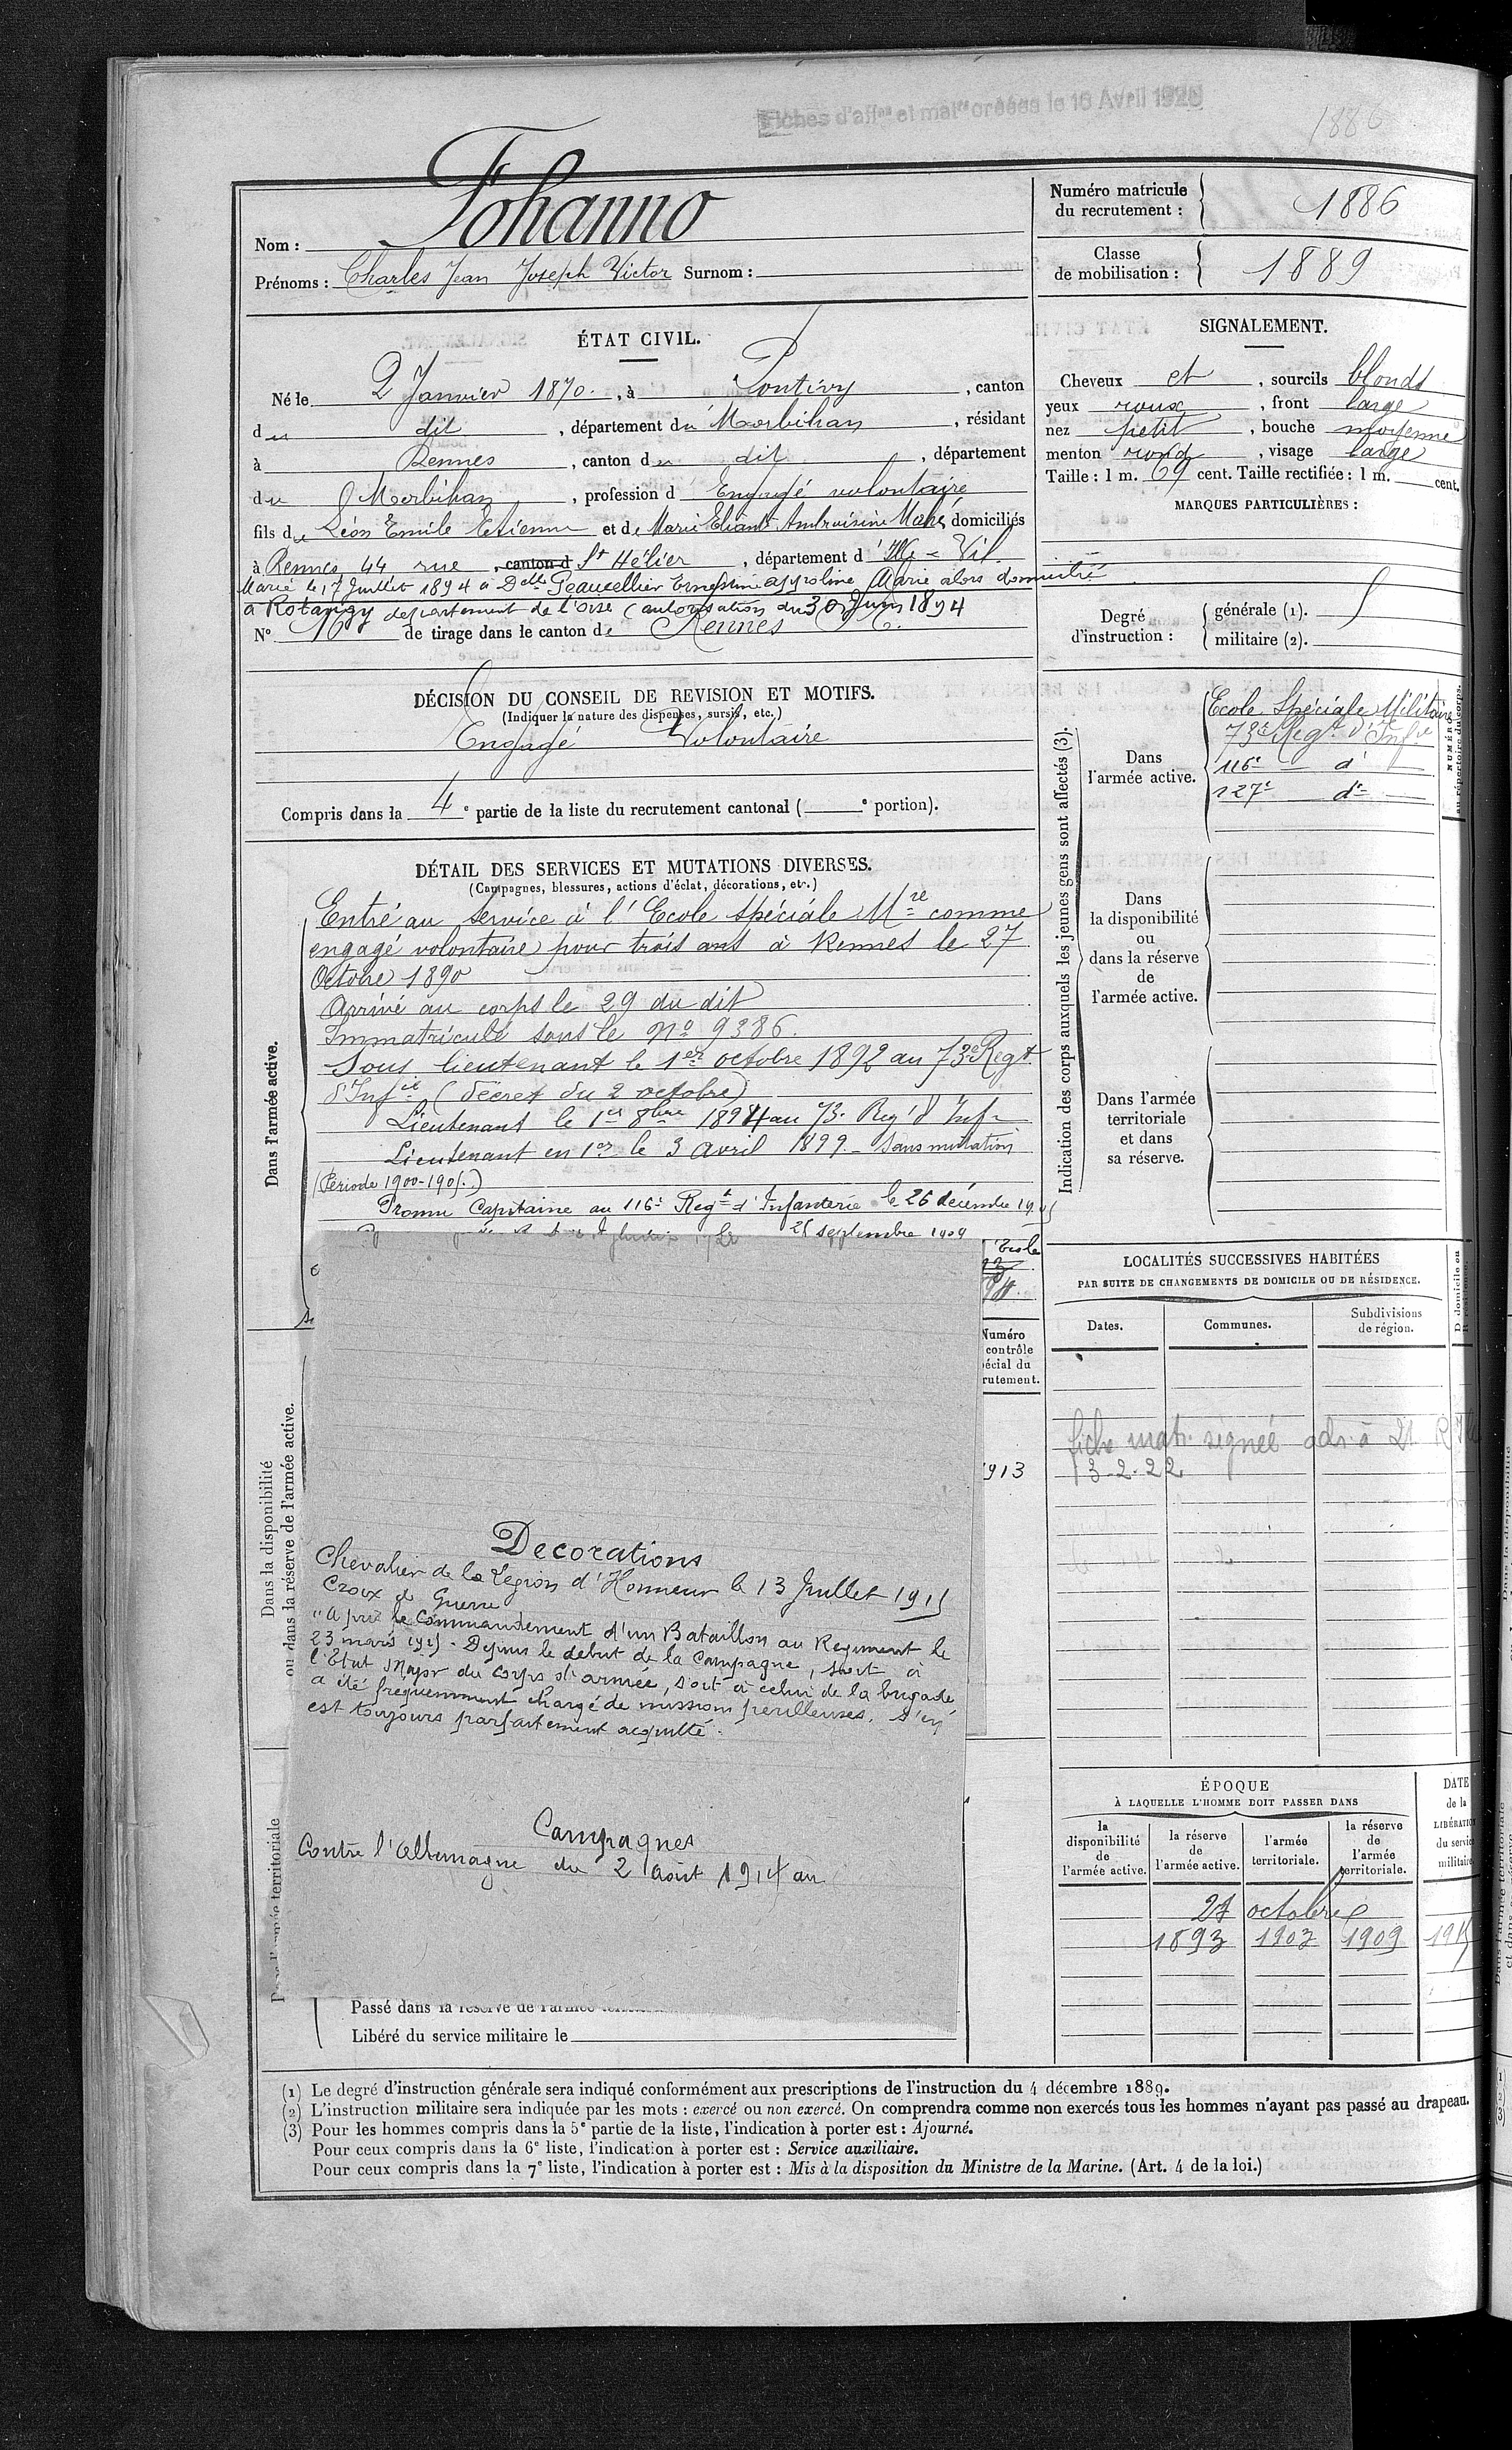 Fiches d'aff^on et mat^re créées le 10 Avril 1926
1886
Nom : Johanno
Prénoms : Charles Jean Joseph Victor Surnom :
Numéro matricule du recrutement : 1886
Classe de mobilisation : 1889
ÉTAT CIVIL.
Né le 2 Janvier 1870. , à Pontivy , canton
du dit , département du Morbihan , résidant
à Rennes , canton du dit , département
du Morbihan , profession d Engagé volontaire
fils de Léon Emile Etienne et de Marie Ambroisine Mahé, domiciliés
à Rennes 44 rue , canton d St Hélier , département d'Ille = Vil.
Marié le 17 Juillet 1894 à Delle Peaucellier Ernestine Marie alors domicilié
à Rotangy département de l'Oise (autorisation du 30 Juin 1894
N° 16 de tirage dans le canton de Rennes
SIGNALEMENT.
Cheveux et , sourcils blonds
yeux roux , front large
nez petit , bouche moyenne
menton rond , visage large
Taille : 1 m. 69 cent. Taille rectifiée : 1 m. cent.
MARQUES PARTICULIÈRES :
Degré d'instruction : générale (1).
militaire (2).
DÉCISION DU CONSEIL DE REVISION ET MOTIFS.
(Indiquer la nature des dispenses, sursis, etc.)
Engagé Volontaire
Compris dans la 4e partie de la liste du recrutement cantonal ( e portion).
Indication des corps auxquels les jeunes gens sont affectés (3).
NUMÉRO au répertoire du corps.
Dans l'armée active.
Ecole Spéciale Militaire
73e Regt d'Infie
116e — d°
127e — d°
Dans la disponibilité ou dans la réserve de l'armée active.
Dans l'armée territoriale et dans sa réserve.
DÉTAIL DES SERVICES ET MUTATIONS DIVERSES.
(Campagnes, blessures, actions d'éclat, décorations, etc.)
Dans l'armée active.
Entré au service à l'Ecole spéciale Mre comme
engagé volontaire pour trois ans à Rennes le 27
Octobre 1890
Arrivé au corps le 29 du dit
Immatriculé sous le No 9386.
Sous lieutenant le 1er octobre 1892 au 73e Regt
d'Infie (décret du 2 octobre)
Lieutenant le 1er 8bre 1894 au 73e Reg' d'Infie
Lieutenant en 1er le 3 avril 1899 - sans mutation
(Période 1900-1905.)
Promu Capitaine au 116e Regt d'Infanterie le 26 décembre
25 septembre 1909
Ecole
Numéro
contrôle
écial du
rutement.
913
Dans la disponibilité ou dans la réserve de l'armée active.
Decorations
Chevalier de la Légion d'Honneur le 13 Juillet 1915
Croix de Guerre
"A pris le commandement d'un Bataillon au Regiment le
23 mars 1915 - Depuis le debut de la Campagne, soit à
l'Etat Major du Corps d'armée, soit à celui de la brigade
a été fréquemment chargé de missions perilleuses, s'en
est toujours parfaitement acquitté.
Campagnes
Contre l'Allemagne du 2 Août 1914 au
territoriale
Passé dans la réserve de l'armée
Libéré du service militaire le
LOCALITÉS SUCCESSIVES HABITÉES
PAR SUITE DE CHANGEMENTS DE DOMICILE OU DE RÉSIDENCE.
Dates. Communes. Subdivisions de région.
fiche matr signée adr. à 21 R
13-2-22
ÉPOQUE
À LAQUELLE L'HOMME DOIT PASSER DANS
la disponibilité de l'armée active. la réserve de l'armée active. l'armée territoriale. la réserve de l'armée territoriale.
DATE de la LIBÉRATION du service militaire
27 octobre
1893 1903 1909 1915
(1) Le degré d'instruction générale sera indiqué conformément aux prescriptions de l'instruction du 4 décembre 1889.
(2) L'instruction militaire sera indiquée par les mots : exercé ou non exercé. On comprendra comme non exercés tous les hommes n'ayant pas passé au drapeau.
(3) Pour les hommes compris dans la 5e partie de la liste, l'indication à porter est : Ajourné.
Pour ceux compris dans la 6e liste, l'indication à porter est : Service auxiliaire.
Pour ceux compris dans la 7e liste, l'indication à porter est : Mis à la disposition du Ministre de la Marine. (Art. 4 de la loi.)